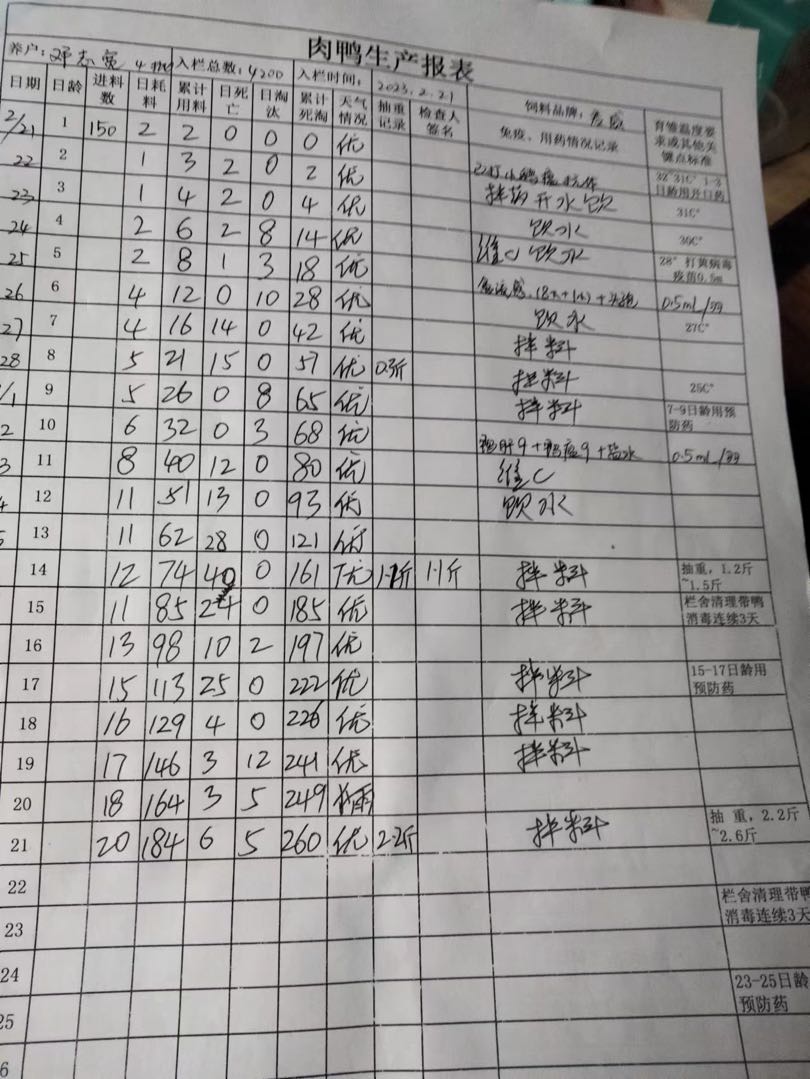 肉鸭生产报表
养户: 邓志 入栏总数: 4200 入栏时间: 2023.2.21 饲料品牌:
日期 日龄 进料数 日耗料 累计用料 日死亡 日淘汰 累计死淘 天气情况 抽重记录 检查人签名 免疫、用药情况记录 育雏温度要求或其他关键点标准
2/21 1 150 2 2 0 0 0 优
22 2 1 3 2 0 2 优 小鸭 抗体 32°31C° 1-3日龄用开口药
23 3 1 4 2 0 4 优 拌药开水饮 31C°
24 4 2 6 2 8 14 优 饮水 30C°
25 5 2 8 1 3 18 优 维C饮水 28°打黄病毒疫苗0.5m
26 6 4 12 0 10 28 优 0.5mL/羽
27 7 4 16 14 0 42 优 饮水 27C°
28 8 5 21 15 0 57 优 0.3斤 拌料
/1 9 5 26 0 8 65 优 拌料 25C°
2 10 6 32 0 3 68 优 拌料 7-9日龄用预防药
3 11 8 40 12 0 80 优 0.5mL/羽
4 12 11 51 13 0 93 优 维C
5 13 11 62 28 0 121 优 饮水
14 12 74 40 0 161 优 1.1斤 1.1斤 拌料 抽重，1.2斤~1.5斤
15 11 85 24 0 185 优 拌料 栏舍清理带鸭消毒连续3天
16 13 98 10 2 197 优
17 15 113 25 0 222 优 拌料 15-17日龄用预防药
18 16 129 4 0 226 优 拌料
19 17 146 3 12 241 优 拌料
20 18 164 3 5 249 雨
21 20 184 6 5 260 优 2.2斤 拌料 抽重，2.2斤~2.6斤
22
23 栏舍清理带鸭消毒连续3天
24
25 23-25日龄预防药
6